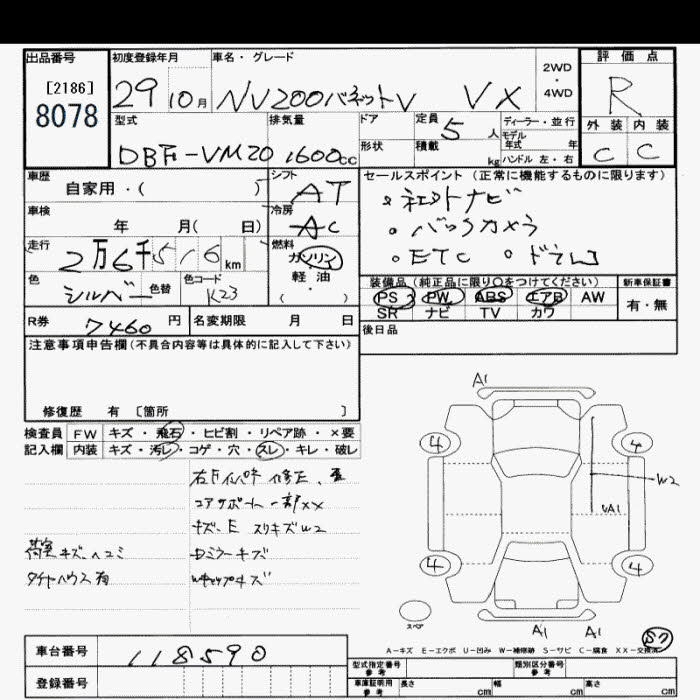 出品番号 初度登録年月 車名・グレード 評価点
[2186]
8078
29 10月 NV200バネットV VX 2WD・4WD R
型式 排気量 ドア 定員 5人 ディーラー・並行 外装 内装
モデル年式 年
DBF-VM20 1600cc 形状 積載 kg ハンドル 左・右 C C
車歴 自家用・( ) シフト AT セールスポイント (正常に機能するものに限ります)
車検 年 月( 日) 冷房 AC
・社外ナビ
・バックカメラ
・ETC ・ドラレコ
走行 2万6千516km 燃料 ガソリン 軽油 ( ・ )
色 シルバー 色替 色コード K23
装備品 (純正品に限り○をつけてください) 新車保証書
PS PW ABS エアB AW 有・無
SR ナビ TV カワ
R券 7460円 名変期限 月 日 後日品
注意事項申告欄(不具合内容等は具体的に記入して下さい)
修復歴 有 〔箇所 〕
検査員 FW キズ・飛石・ヒビ割・リペア跡・×要
記入欄 内装 キズ・汚レ・コゲ・穴・スレ・キレ・破レ
修正
コアサポート一部XX
キズ、E スリキズW2
荷室キズ、ヘコミ ミラーキズ
キズ
A1
4 4
W2
A1
4 4
スペア
A1 A1
S7
A-キズ E-エクボ U-凹み W-補修跡 S-サビ C-腐食 XX-交換済
車台番号 118590
登録番号
型式指定番号 参考 類別区分番号 参考
車庫証明用 参考 長さ cm 幅 cm 高さ cm